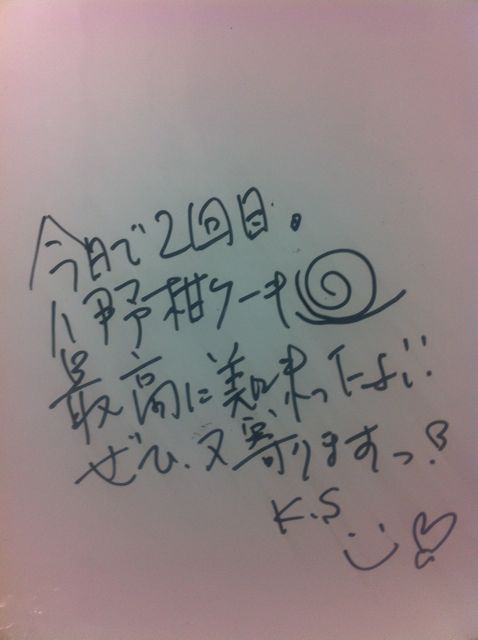 今日で2回目。
野柑ケーキ
最高に美味ったよ!!
ぜひ、又寄りますっ
K.S